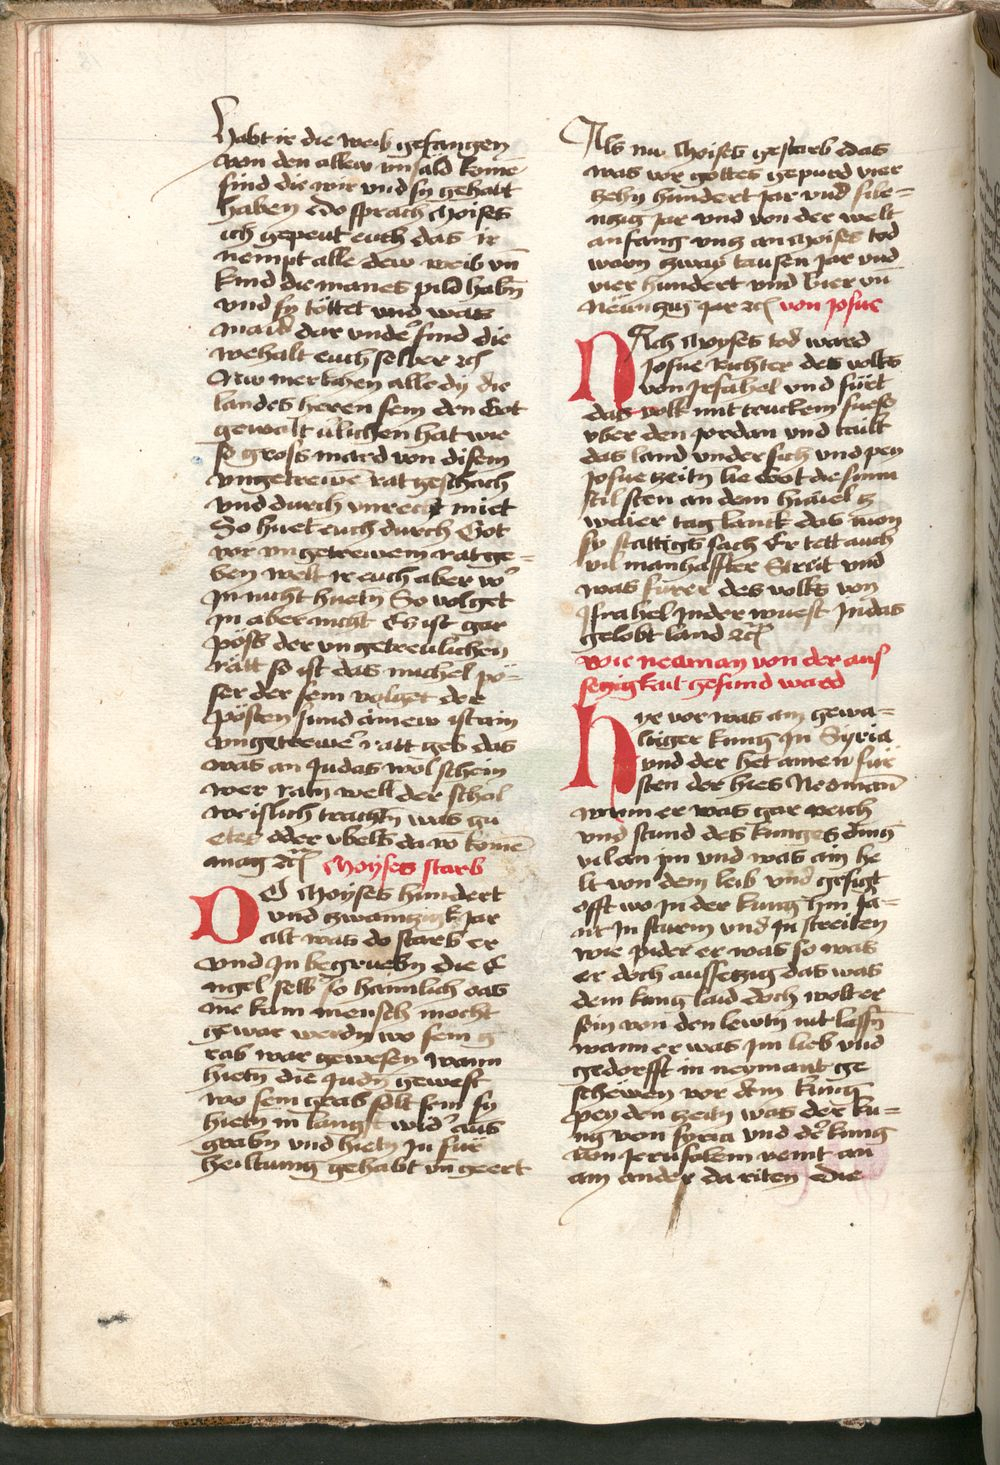 habt ir die weib gefangen
von den allew vnsäld kome
sind die wir vnd sy gehatt
haben Do sprach Moises
ich gepeut euch das ir
nempt alle dew weib vn̄
kind die manes pild habn̄
vnd sy töttet vnd was
maid dar vnder sind die
wehalt euch selber ꝛc̄
Nw merkchen alle dy die
landes heren sein den Got
gewalt v̈lichen hat wie
so gross mard von disem
vngetrewē rat geschach
vnd durch vnrecht miet
So huet euch durch Got
vor vngetrewem rat ge=
ben welt ir euch aber vo͛
In nicht huetn̄ So volget
In aber nicht Es ist gar
pöss der vngetreulichen
rätt so ist das michel pö=
ser der sein volget der
pösten sund ainew ist ain
vngetrewe͛ ratt geb das
was an Judas wol schein
wer ratn̄ well der schol
weislich trachtn̄ was gu
etes oder vbels da vō komē
mag ꝛc̄ Moyses starb
DO Moyses hundert
vnd zwainczigk Jar
alt was do starb er
vnd In begruebn̄ die E
ngel selb so haimlich das
nie kain mensch mocht
gewar werdn̄ wo sein g
rab war gewesen wann
hietn̄ die Judn̄ gewest
wo sein grab solt sein sy
hietn̄ in langst wid͛ aus
grabn̄ vnd hietn̄ In für
heiltung gehabt vn geert
Als nu Moises gestarb das
was vor gottes gepurd vier
zehn hundert Jar vnd sibe=
nczig Jar vnd von der welt
anfang vncz an Moises tod
warn zway tausen Jar vnd
vier hundert vnd vier vn̄
Newnczig Jar ꝛc̄ von Josue
NAch Moyses tod ward
Josue Richter des volks
von Jsrahel vnd fürt
das volk mit truckem fuess
vber den Jordan vnd tailt
das land vnder sich vnd pey
Josue zeitn̄ lie Got die sunn
stil sten an dem himel z
waier tag lanck das mon
sy stättigs sach Er tett auch
vil manhaffter Streit vnd
was fürer des volks von
Jsrahel In der wuest In das
gelobt land ꝛc̄
wie neaman von der aus
seczigkait gesund ward
Hye vor was ain gewa=
ltiger kung In Syria
vnd der het ainen für
sten der hies Neoman̄
wann er was gar reich
vnd stund des kunges ding
vil an im vnd was ain he
lt von dem leib vnd gesigt
offt wo In der kung hin sa=
nt In sturm vnd In streiten
wie pider er was so was
er doch aussetzig das was
dem kung laid doch wolt er
sein von den lewtn̄ nit lassn̄
wann er was Im lieb vnd
gedorfft in neymant ge
schewen vor dem kung
pey den zeitn̄ was der ku=
ng von syria vnd de͛ kung
von Jerusalem veint an
ain ander da riten die